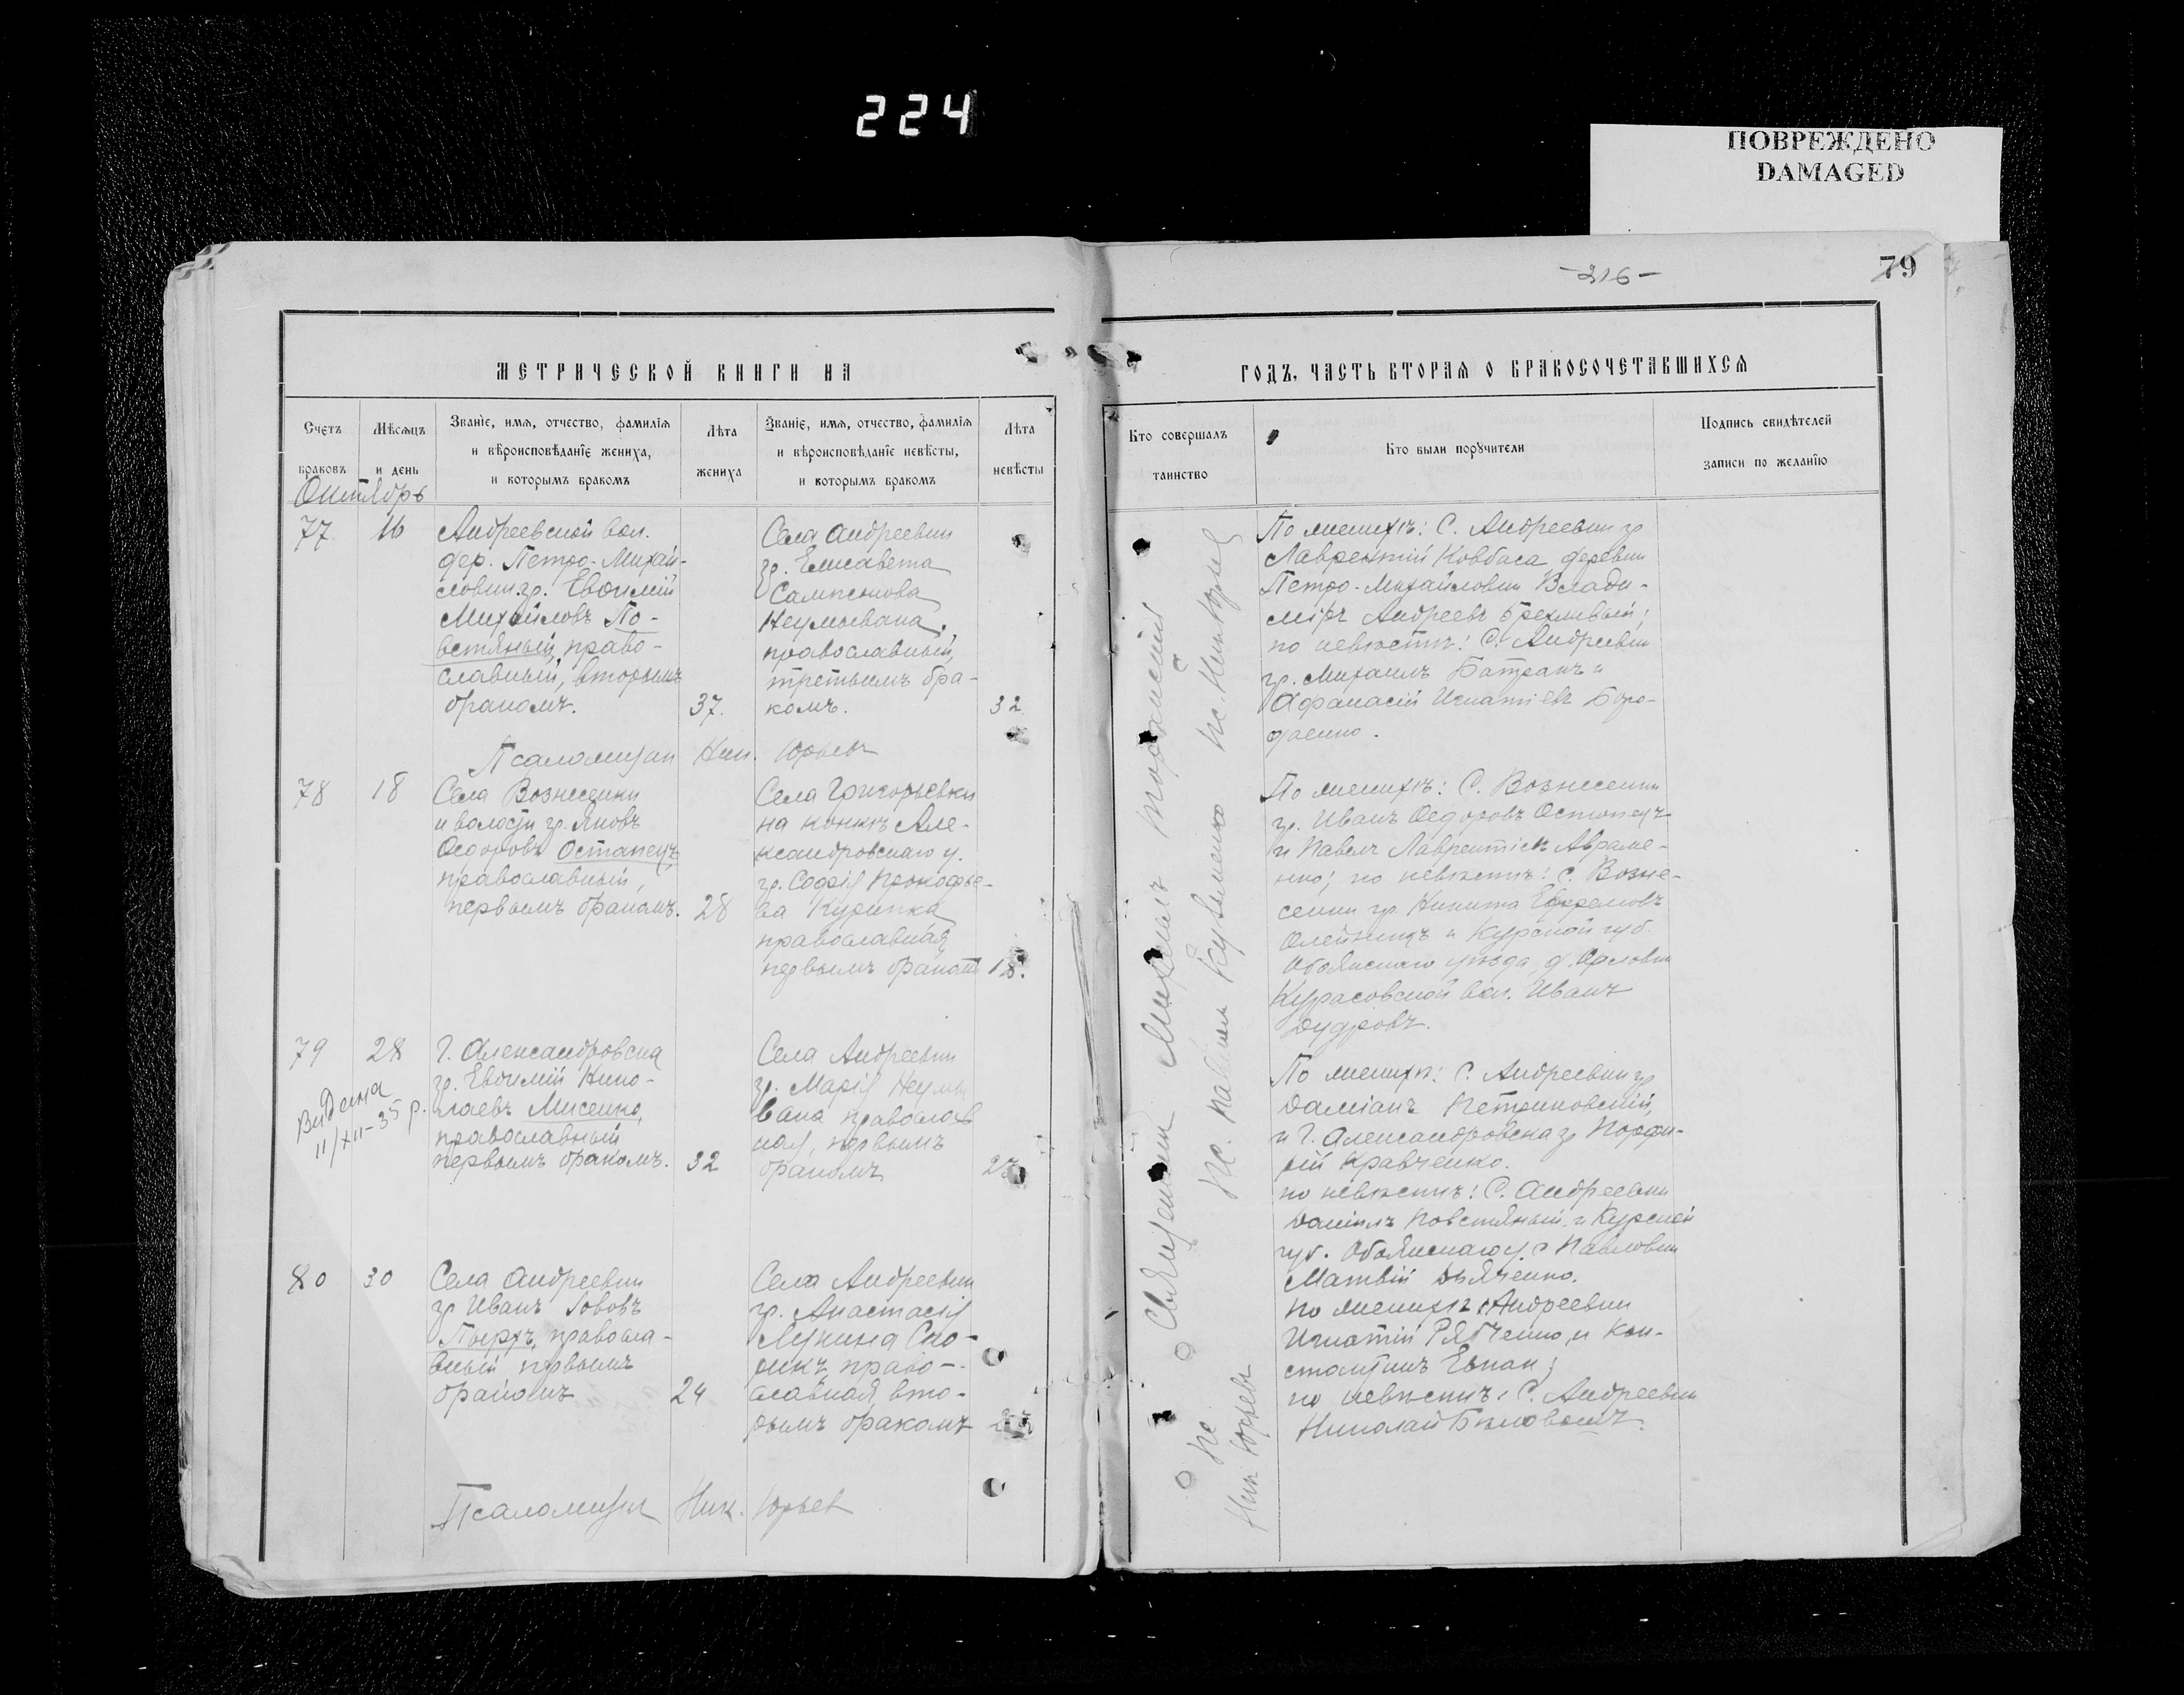 224
ПОВРЕЖДЕНО
DAMAGED
-216-
79
МЕТРИЧЕСКОЙ КНИГИ НА
ГОДЪ, ЧАСТЬ ВТОРАЯ О БРАКОСОЧЕТАВШИХСЯ
Счетъ браковъ
Мѣсяцъ и день
Званіе, имя, отчество, фамилія
и вѣроисповѣданіе жениха,
и которымъ бракомъ
Лѣта жениха
Званіе, имя, отчество, фамилія
и вѣроисповѣданіе невѣсты,
и которымъ бракомъ
Лѣта невѣсты
Кто совершалъ таинство
Кто были поручители
Подпись свидѣтелей
записи по желанію
Октябрь
77.
16
Андреевской вол.
дер. Петро-Михай-
ловки гр. Евѳимій
Михайловъ По-
встяный, право-
славный, вторымъ
бракомъ.
37.
Села Андреевки
гр. Елисавета
Сампсонова
Неумывана,
православный,
третьимъ бра-
комъ.
32
По женихѣ: С. Андреевки гр
Лаврентій Ковбаса деревни
Петро-Михайловки Влади-
міръ Андреевъ Брехливый;
по невѣстѣ: С. Андреевки
гр. Михаилъ Батракъ и
Афанасій Игнатіевъ Боро-
даенко.
Псаломщик Ник. Юрьевъ
78
18
Села Вознесенки
и волости гр. Яковъ
Ѳедоровъ Остапецъ,
православный,
первымъ бракомъ.
28
Села Григорьевки
на конкѣ Але-
ксандровскаго у.
гр. Софія Прокофье-
ва Курипка
православная
первымъ бракомъ
18.
По женихѣ: С. Вознесенки
гр. Иванъ Ѳедоровъ Остапецъ
и Павелъ Лаврентіевъ Авраме-
нко; по невѣстѣ: с. Возне-
сенки гр. Никита Ефремовъ
Олейникъ и Курской губ.
Обоянскаго уѣзда, д. Орловки
Курасовской вол. Иванъ
Дудровъ.
79
28
Видена
11/XII-35 р.
Г. Александровска
гр. Евѳимій Нико-
лаевъ Мисенко,
православный
первымъ бракомъ.
32
Села Андреевки
гр. Марія Неумы
вана православ
ная, первымъ
бракомъ
По женихѣ: С. Андреевки гр
Даміанъ Петриковскій,
и Г. Александровска гр Порфи-
рій Кравченко.
по невѣстѣ: С. Андреевки
Даніилъ Повстяный и Курской
губ. Обоянскаго у. с Павловки
Матвій Дьяченко.
80
30
Села Андреевки
гр Иванъ Іововъ
Пырхъ, правосла-
вный первымъ
бракомъ
24
Села Андреевки
гр. Анастасія
Лукина Сто-
рикъ, право-
славная, вто-
рымъ бракомъ
по женихѣ: Андреевки
Игнатій Рябченко, и Кон-
стантинъ
по невѣстѣ: С. Андреевки
Николай Бѣловолъ.
Псаломщик Ник. Юрьев
Священник Михаилъ
Пс. Павелъ Кузьменко Пс. Ник Юрьев
Пс
Ник Юрьевъ